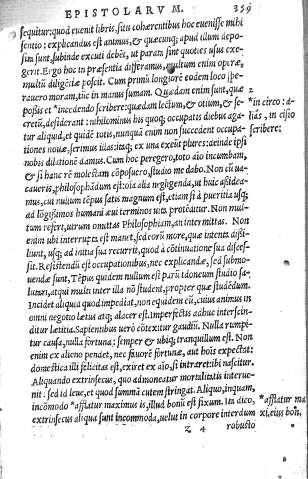 EPISTOLARV M. 359
sequitur: quod euenit libris, situ cohærentibus hoc euenisse mihi
sentio: explicandus est animus, & quæcunq; apud illum depo-
sita sunt, subinde excuti debēt, ut parata sint quoties usus exe-
gerit. Ergo hoc in præsentia differamus, multum enim operæ,
multū diligētiæ poscit. Cum primū longiorē eodem loco spe-
rauero moram, tūc in manus sumam. Quædam enim sunt, quæ
possis et *incedendo scribere: quædam lectum, & otium, & se-
cretū, desiderant: nihilominus his quoq; occupatis diebus aga-
tur aliquid, et quidē totis, nunquā enim non succedent occupa-
tiones nouæ, serimus illas: itaq; ex una exeūt plures: deinde ipsi
nobis dilationē damus. Cum hoc peregero, toto aīo incumbam,
& si hanc rē molestam cōposuero, studio me dabo. Nō cū ua-
caueris, philosophādum est: oīa alia negligenda, ut huic assidea-
mus, cui nullum tēpus satis magnum est, etiam si à pueritia usq;
ad lōgissimos humani æui terminos uita protēditur. Non mul-
tum refert, utrum omittas Philosophiam, an intermittas. Non
enim ubi interrupta est manet, sed eorū more, quæ intenta dissi-
liunt, usq; ad initia sua recurrit, quod à cōtinuatione sua disces-
sit. Resistendū est occupationibus, nec explicandæ, sed submo-
uendæ sunt. Tēpus quidem nullum est parū idoneum studio sa-
lutari, atqui multi inter illa nō student, propter quæ studēdum.
Incidet aliquid quod impediat, non equidem eū, cuius animus in
omni negotio lætus atq; alacer est. imperfectis adhuc interscin-
ditur lætitia. Sapientibus uerò cōtexitur gaudiū. Nulla rumpi-
tur causa, nulla fortuna: semper & ubiq; tranquillum est. Non
enim ex alieno pendet, nec fauorē fortunæ, aut hoīs expectat:
domestica illi felicitas est, exiret ex aīo, si intraret: ibi nascitur.
Aliquando extrinsecus, quo admoneatur mortalitatis interue-
nit: sed id leue, et quod summā cutem stringat. Aliquo, inquam,
incōmodo *afflatur maximus is, illud bonū est fixum. Ita dico,
extrinsecus aliqua sunt incommoda, uelut in corpore interdum
z 4 robusto
2
*in circo: a-
liàs, in cisio
scribere:
*afflatur ma
xi, eius bon,